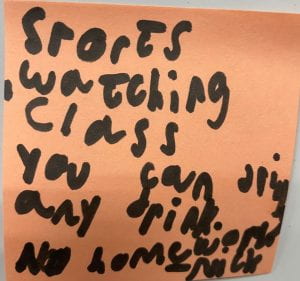 Sports
watching
Class
You can
any drink.
No homework
nick